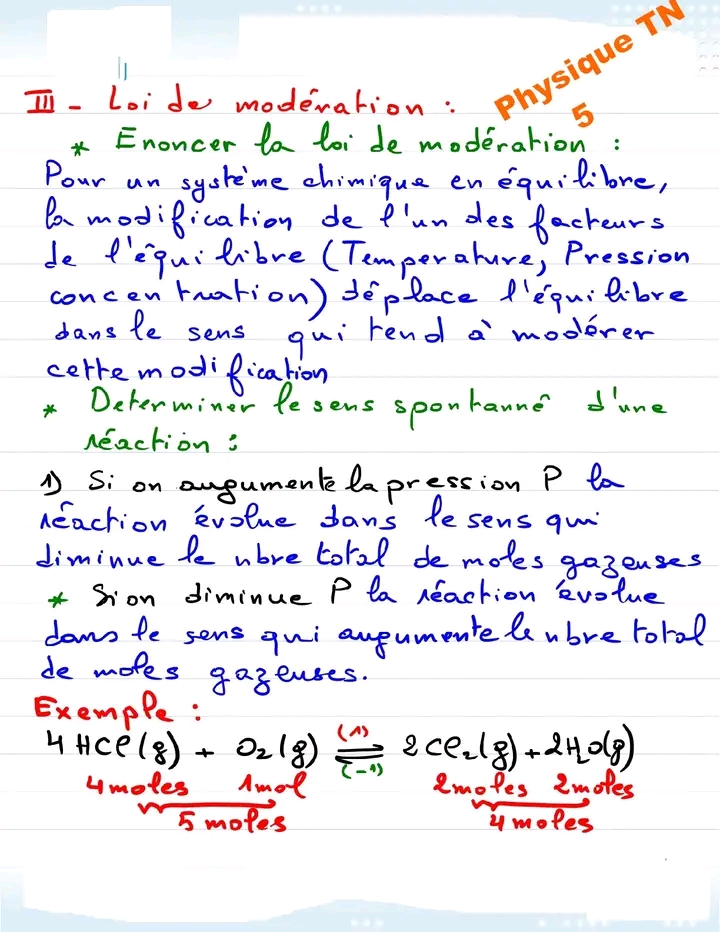 Physique TN
5
III - Loi de modération :
* Enoncer la loi de modération :
Pour un système chimique en équilibre,
la modification de l'un des facteurs
de l'équilibre (Temperature, Pression
concentration) déplace l'équilibre
dans le sens qui tend à modérer
cette modification
* Determiner le sens spontanné d'une
réaction :
1) Si on augumente la pression P la
réaction évolue dans le sens qui
diminue le nbre total de moles gazeuses
* Si on diminue P la réaction évolue
dans le sens qui augumente le nbre total
de moles gazeuses.
Exemple :
4 HCl(g) + O₂(g) ⇌ 2Cl₂(g) + 2H₂O(g)
(1)
(-1)
4 moles 1 mol 2 moles 2 moles
5 moles 4 moles